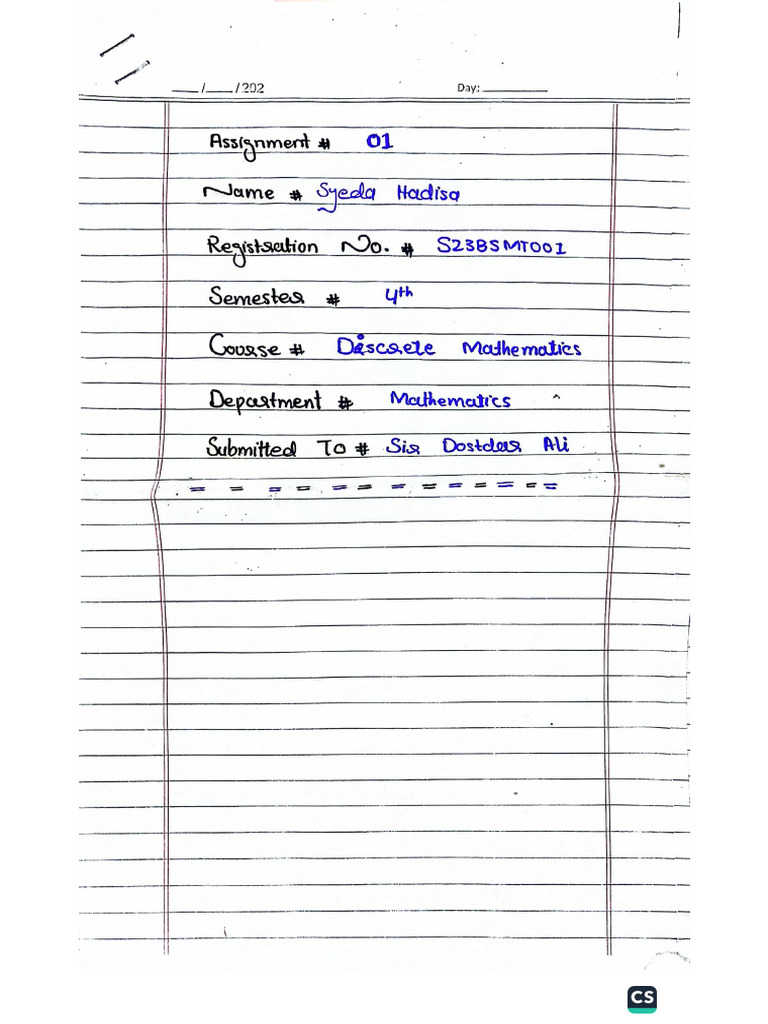 __/__/202 Day: ______
Assignment # 01
Name # Syeda Hadisa
Registration No. # S23BSMT001
Semester # 4th
Course # Discrete Mathematics
Department # Mathematics
Submitted To # Sir Dostdar Ali
CS